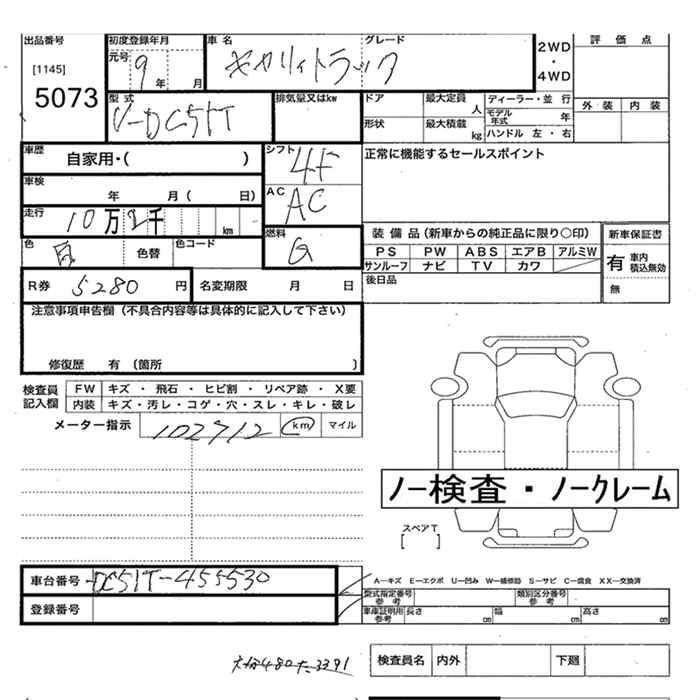 出品番号 初度登録年月 車名 グレード 2WD・4WD 評価点
[1145] 元号 9年 月 キャリィトラック
5073 型式 V-DC51T 排気量又はkw ドア 最大定員 人 ディーラー・並行 外装 内装
形状 最大積載 kg モデル年式 年
ハンドル 左・右
車歴 自家用・( ) シフト 4F 正常に機能するセールスポイント
車検 年 月( 日) AC AC
走行 10万2千 km 燃料 G 装備品(新車からの純正品に限り○印) 新車保証書
色 白 色替 色コード PS PW ABS エアB アルミW 有 車内積込無効
サンルーフ ナビ TV カワ 無
R券 5280円 名変期限 月 日 後日品
注意事項申告欄(不具合内容等は具体的に記入して下さい)
修復歴 有(箇所 )
検査員記入欄 FW キズ・飛石・ヒビ割・リペア跡・X要
内装 キズ・汚レ・コゲ・穴・スレ・キレ・破レ
メーター指示 102712 km マイル
ノー検査・ノークレーム
スペアT
[ ]
車台番号 DC51T-455530 A−キズ E−エクボ U−凹み W−補修跡 S−サビ C−腐食 XX−交換済
登録番号 型式指定番号 参考 類別区分番号 参考
車庫証明用参考 長さ cm 幅 cm 高さ cm
480 た 3391 検査員名 内外 下廻